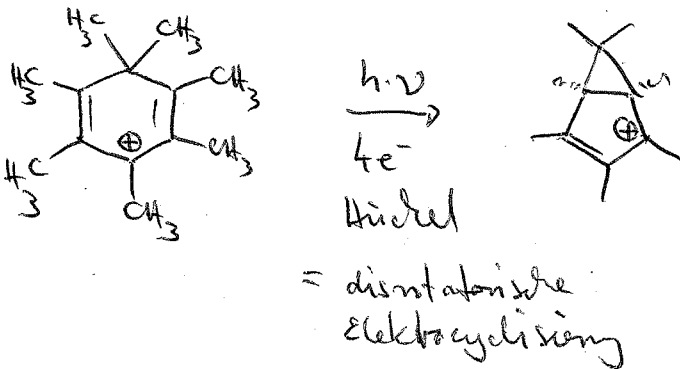 H₃C
CH₃
H₃C
CH₃
H₃C
CH₃
CH₃
⊕
h·ν
4e⁻
Hückel
= disrotatorische
Elektrocyclisierung
⊕